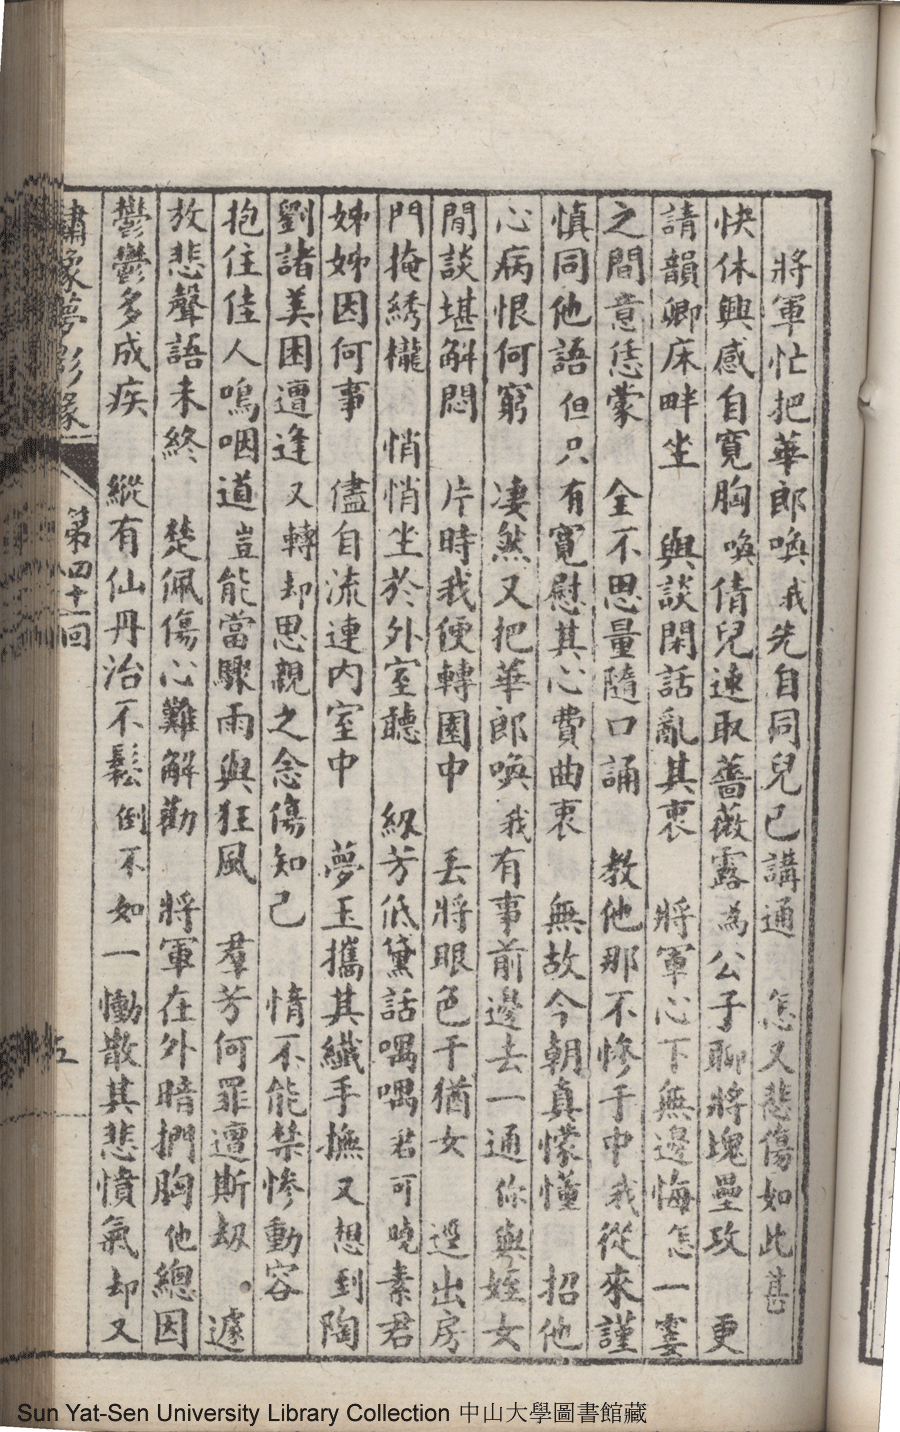 將軍忙把華郎喚 我先自同兒已講通 怎又悲傷如此甚
快休興感自寬胸 喚倩兒速取薔薇露 為公子聊將塊壘攻 更
請韻卿床畔坐 與談閑話亂其衷 將軍心下無邊悔 怎一霎
之間意恁蒙 全不思量隨口誦 教他那不慘于中 我從來謹
慎同他語 但只有寬慰其心費曲衷 無故今朝真懞懂 招他
心病恨何窮 凄然又把華郎喚 我有事前邊去一通 你與姪女
閒談堪解悶 片時我便轉園中 丟將眼色干猶女 逕出房
門掩綉櫳 悄悄坐於外室聽 紉芳低黛話喁喁 君可曉素君
姊姊因何事 儘自流連內室中 夢玉攜其纖手撫 又想到陶
劉諸美困遭逢 又轉却思親之念傷知己 情不能禁慘動容
抱住佳人嗚咽道 豈能當驟雨與狂風 羣芳何罪遭斯劫 。遽
放悲聲語未終 楚佩傷心難解勸 將軍在外暗捫胸 他總因
鬱鬱多成疾 縱有仙丹治不鬆 倒不如一慟散其悲憤氣 却又
繡像夢影緣 第四十一回 五
Sun Yat-Sen University Library Collection 中山大學圖書館藏